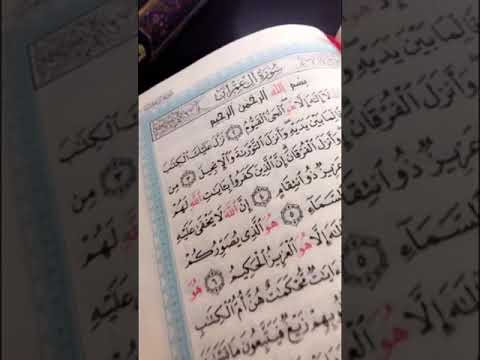 سُورَةُ آلِ عِمْرَانَ
بسم الله الرحمن الرحيم
لَآ إِلَٰهَ إِلَّا هُوَ ٱلْحَىُّ ٱلْقَيُّومُ ٢ نَزَّلَ عَلَيْكَ ٱلْكِتَٰبَ
لِّمَا بَيْنَ يَدَيْهِ وَأَنزَلَ ٱلتَّوْرَىٰةَ وَٱلْإِنجِيلَ ٣ مِن
وَأَنزَلَ ٱلْفُرْقَانَ إِنَّ ٱلَّذِينَ كَفَرُوا۟ بِـَٔايَٰتِ ٱللَّهِ لَهُمْ
عَزِيزٌ ذُو ٱنتِقَامٍ ٤ إِنَّ ٱللَّهَ لَا يَخْفَىٰ عَلَيْهِ
ٱلسَّمَآءِ ٥ هُوَ ٱلَّذِى يُصَوِّرُكُمْ
إِلَٰهَ إِلَّا هُوَ ٱلْعَزِيزُ ٱلْحَكِيمُ ٦ هُوَ
ءَايَٰتٌ مُّحْكَمَٰتٌ هُنَّ أُمُّ ٱلْكِتَٰبِ
زَيْغٌ فَيَتَّبِعُونَ مَا تَشَٰبَهَ